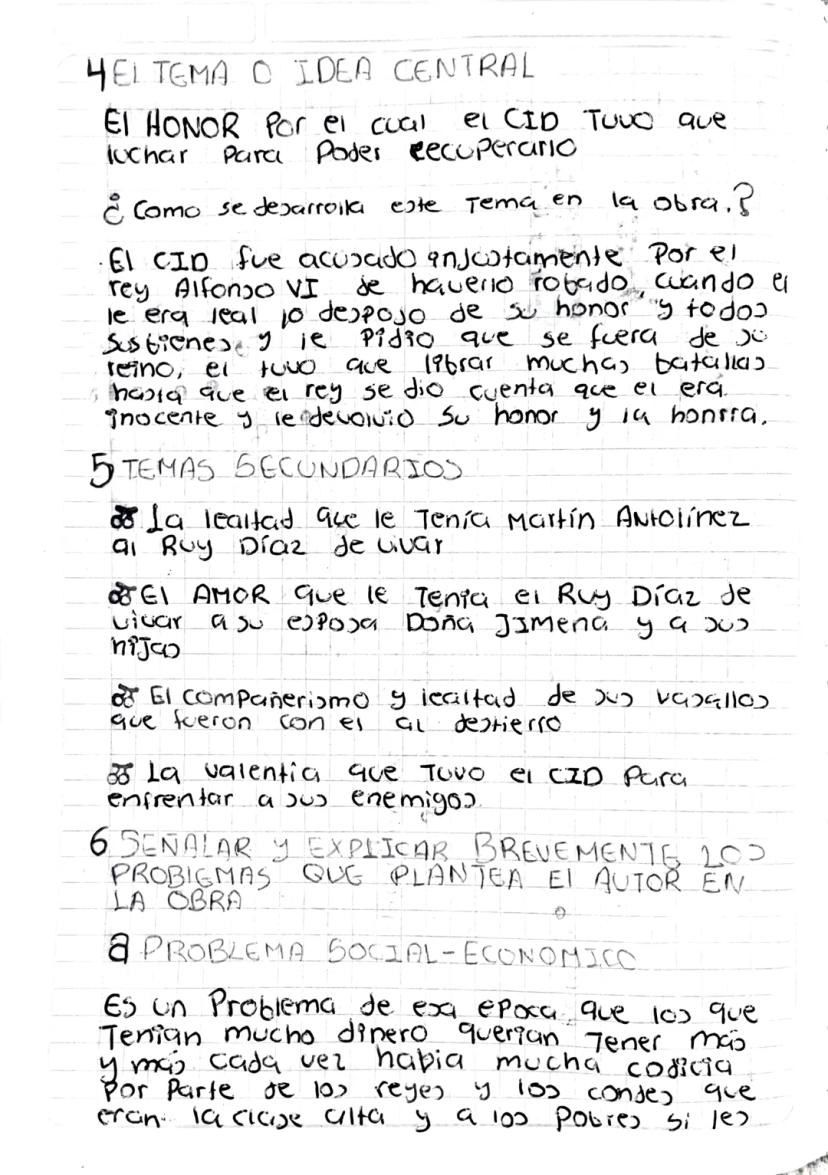 4 El TEMA O IDEA CENTRAL
El HONOR Por el cual el CID Tuvo que
luchar Para Poder recuperarlo
¿Como se desarrolla este Tema en la obra.?
El CID fue acusado injustamente Por el
rey Alfonso VI de haverlo robado, cuando el
le era leal lo despojo de su honor y todos
sus bienes y le Pidio que se fuera de su
reino, el tuvo que librar muchas batallas
hasta que el rey se dio cuenta que el era
inocente y le devolvio su honor y la honrra.
5 TEMAS SECUNDARIOS
La lealtad que le Tenía Martín Antolínez
al Ruy Díaz de vivar
El AMOR que le Tenia el Ruy Díaz de
vivar a su esposa Doña JIMENA y a sus
hijas
El compañerismo y lealtad de sus vasallos
que fueron con el al destierro
La valentia que Tuvo el CID Para
enfrentar a sus enemigos
6 SEÑALAR Y EXPLICAR BREVEMENTE LOS
PROBLEMAS QUE PLANTEA El AUTOR EN
LA OBRA
a PROBLEMA SOCIAL-ECONOMICO
Es un Problema de esa epoca que los que
Tenian mucho dinero querian Tener más
y más cada vez habia mucha codicia
Por Parte de los reyes y los condes que
eran la clase alta y a los Pobres si les